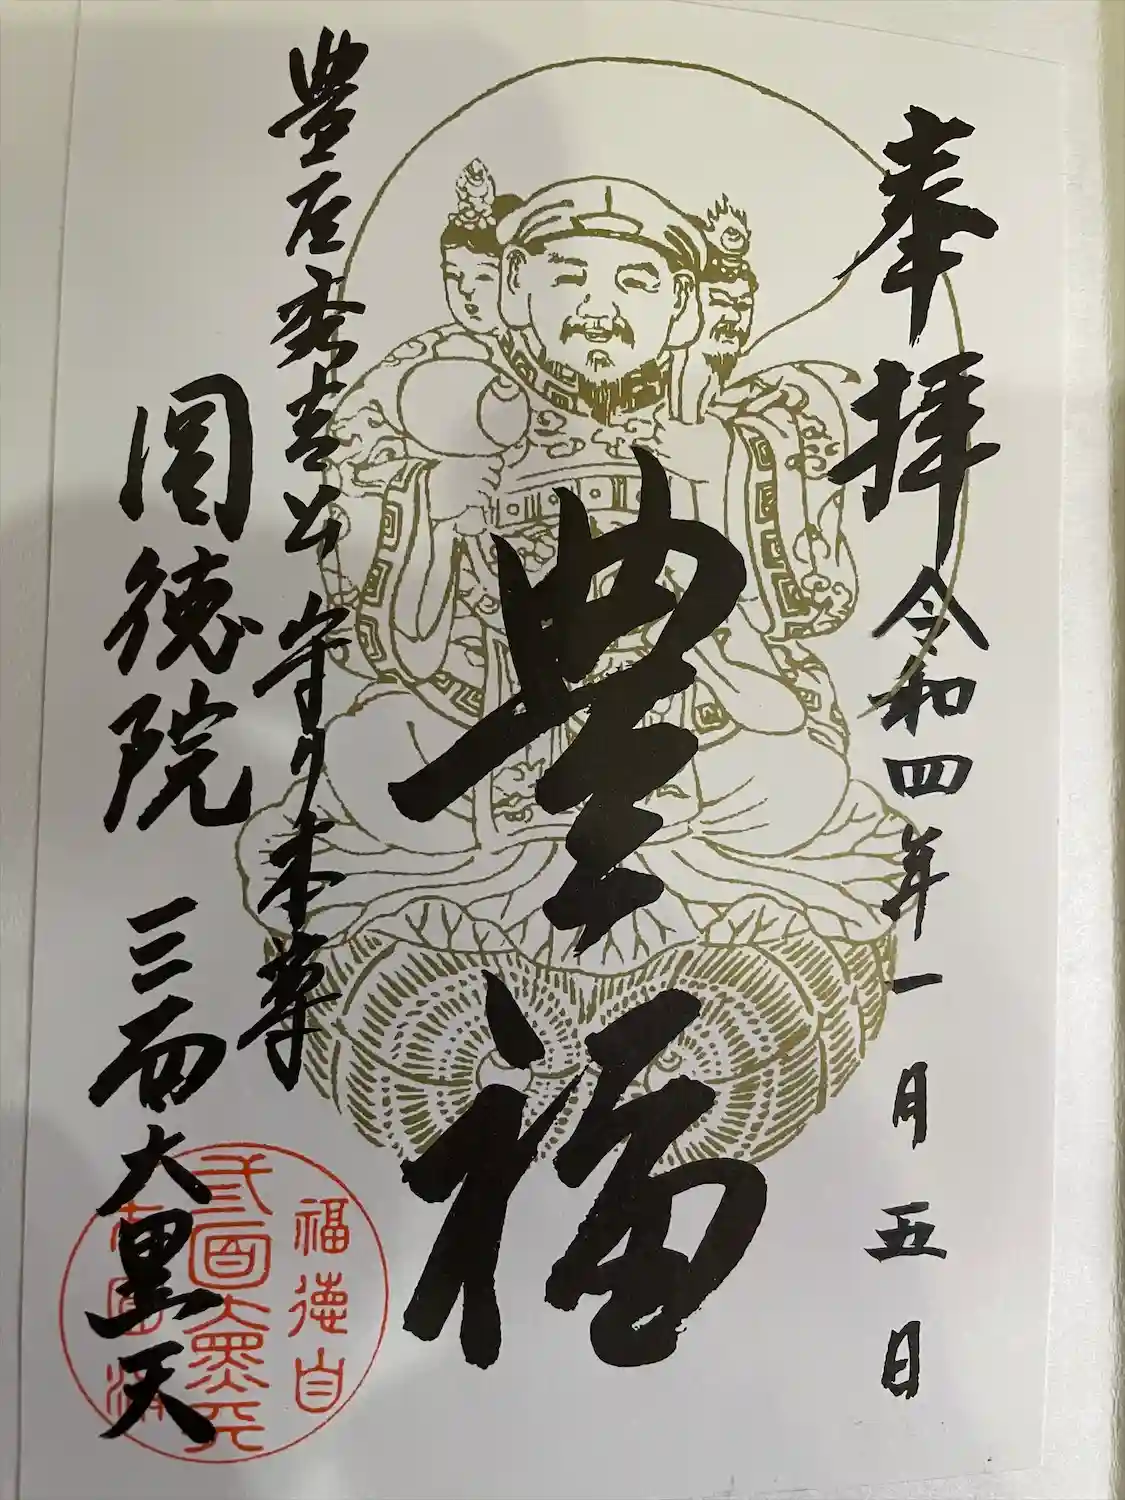 奉拝
令和四年一月五日
豊福
豊臣秀吉公 守り本尊
圓徳院 三面大黒天
福徳自
三面大黒天